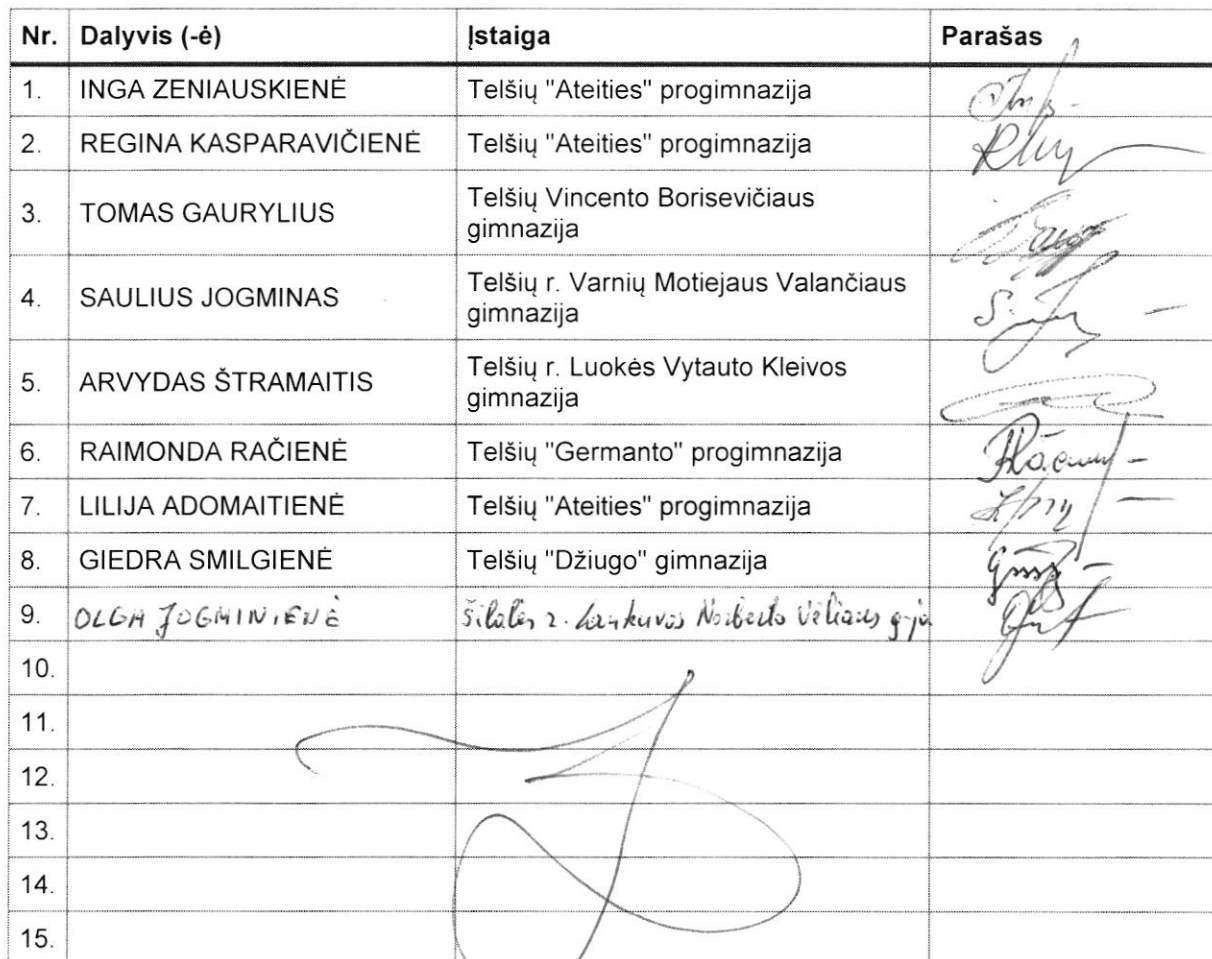 Nr. Dalyvis (-ė) Įstaiga Parašas
1. INGA ZENIAUSKIENĖ Telšių "Ateities" progimnazija
2. REGINA KASPARAVIČIENĖ Telšių "Ateities" progimnazija
3. TOMAS GAURYLIUS Telšių Vincento Borisevičiaus
gimnazija
4. SAULIUS JOGMINAS Telšių r. Varnių Motiejaus Valančiaus
gimnazija
5. ARVYDAS ŠTRAMAITIS Telšių r. Luokės Vytauto Kleivos
gimnazija
6. RAIMONDA RAČIENĖ Telšių "Germanto" progimnazija
7. LILIJA ADOMAITIENĖ Telšių "Ateities" progimnazija
8. GIEDRA SMILGIENĖ Telšių "Džiugo" gimnazija
9. OLGA JOGMINIENĖ Šilalės r. Laukuvos Norberto Vėliaus g-ja
10.
11.
12.
13.
14.
15.